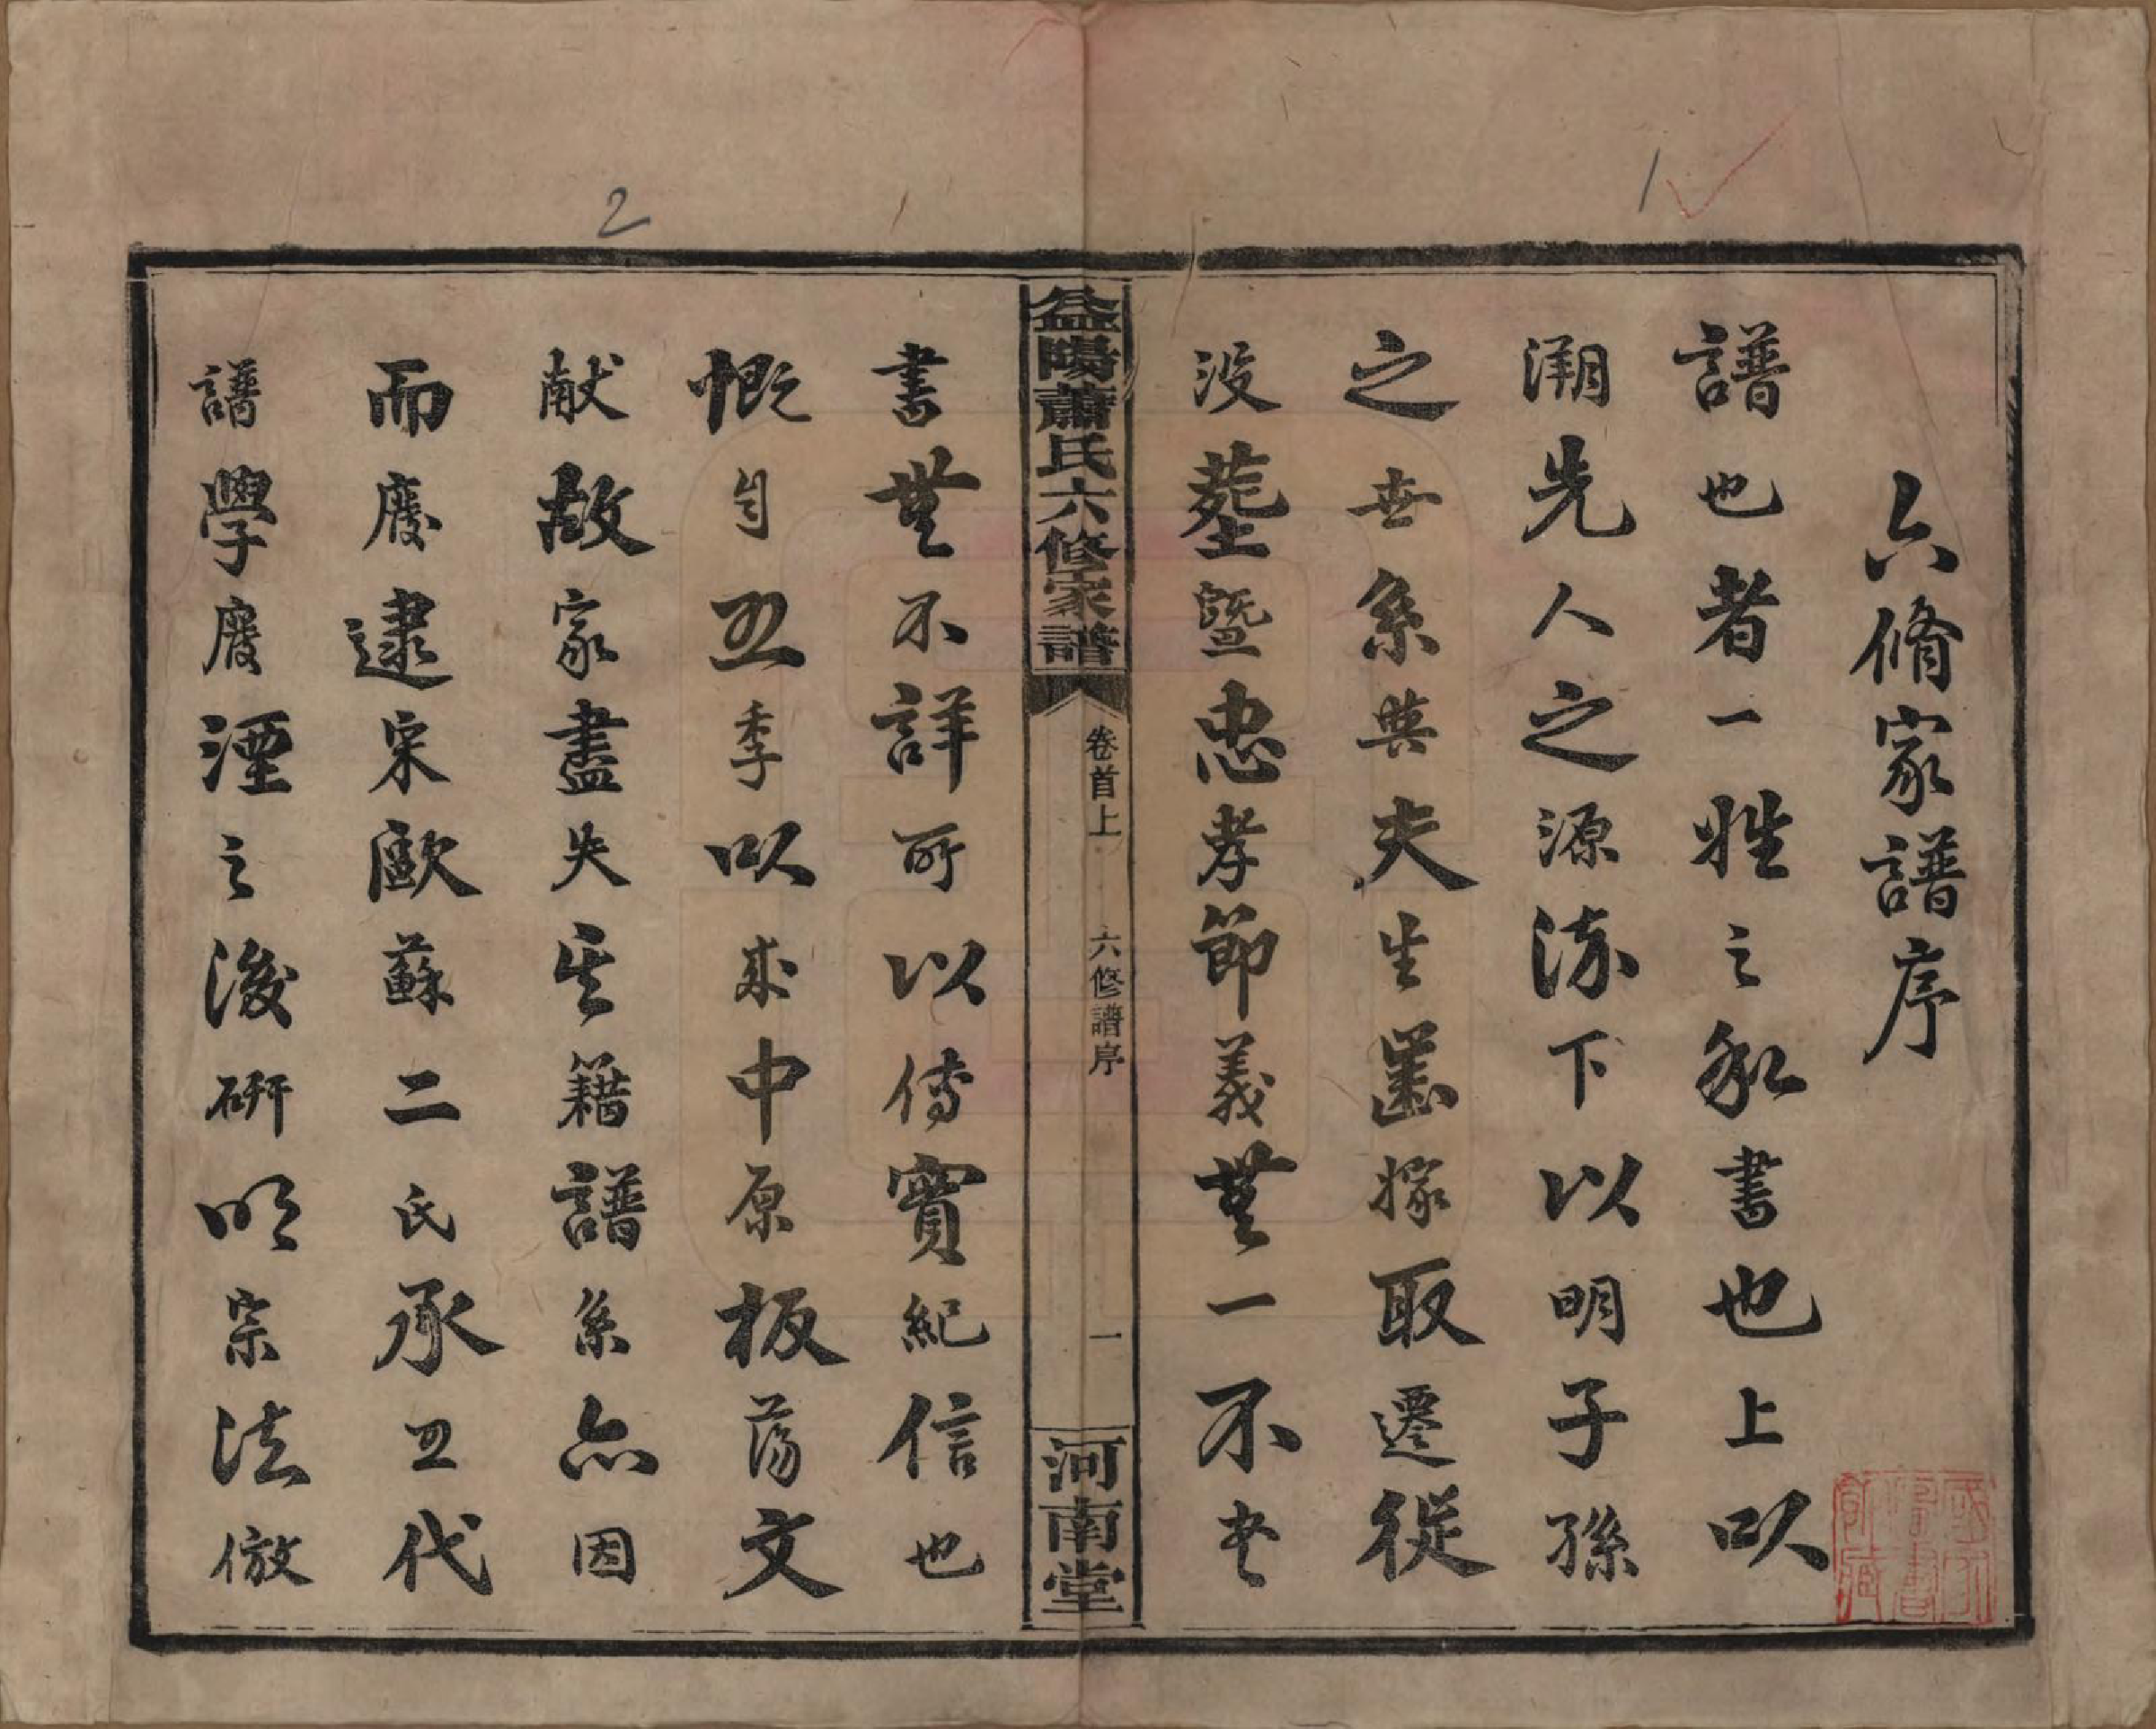 六脩家譜序
譜也者一姓之私書也上以
溯先人之源流下以明子孫
之世系與夫生嵗嫁取遷徙
没塟暨忠孝節義無一不書
益陽蕭氏六修家譜
卷首上
六修譜序
一
河南堂
書無不詳所以傳實紀信也
慨自五季以来中原板蕩文
献故家盡失其籍譜系亦因
而廢逮宋歐蘇二氏承五代
譜學廢湮之後研明宗法倣
1
2